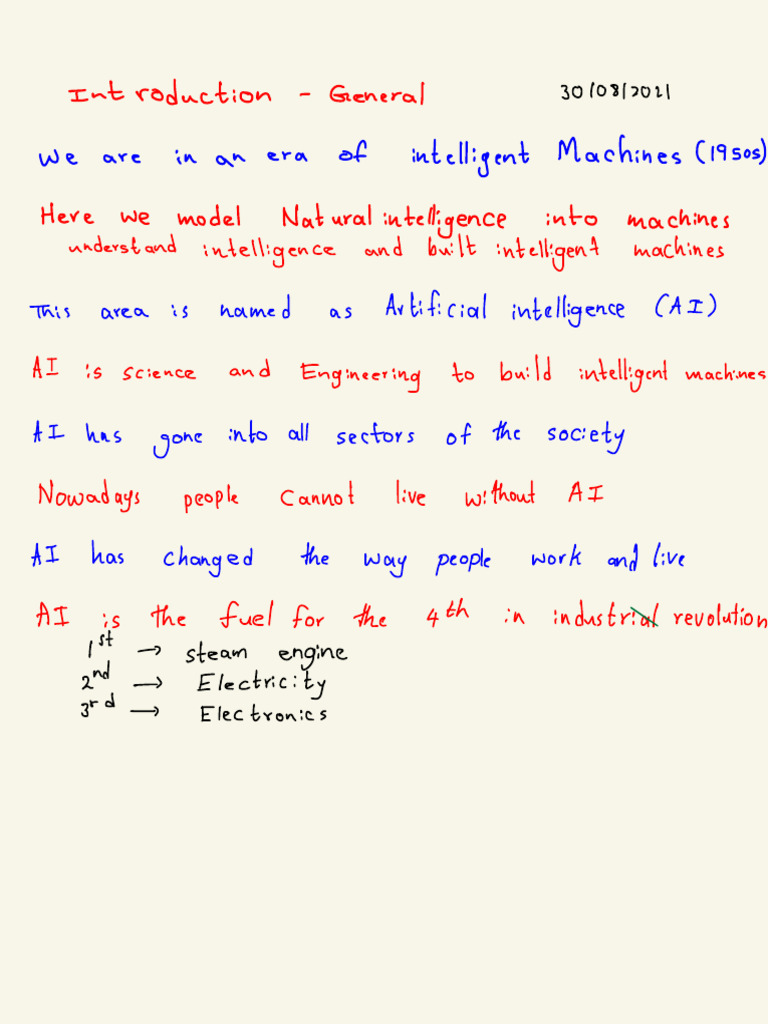 Introduction - General 30/08/2021
We are in an era of intelligent Machines (1950s)
Here we model Natural intelligence into machines
understand intelligence and built intelligent machines
This area is named as Artificial intelligence (AI)
AI is science and Engineering to build intelligent machines
AI has gone into all sectors of the society
Nowadays people cannot live without AI
AI has changed the way people work and live
AI is the fuel for the 4th in industrial revolution
1st → steam engine
2nd → Electricity
3rd → Electronics